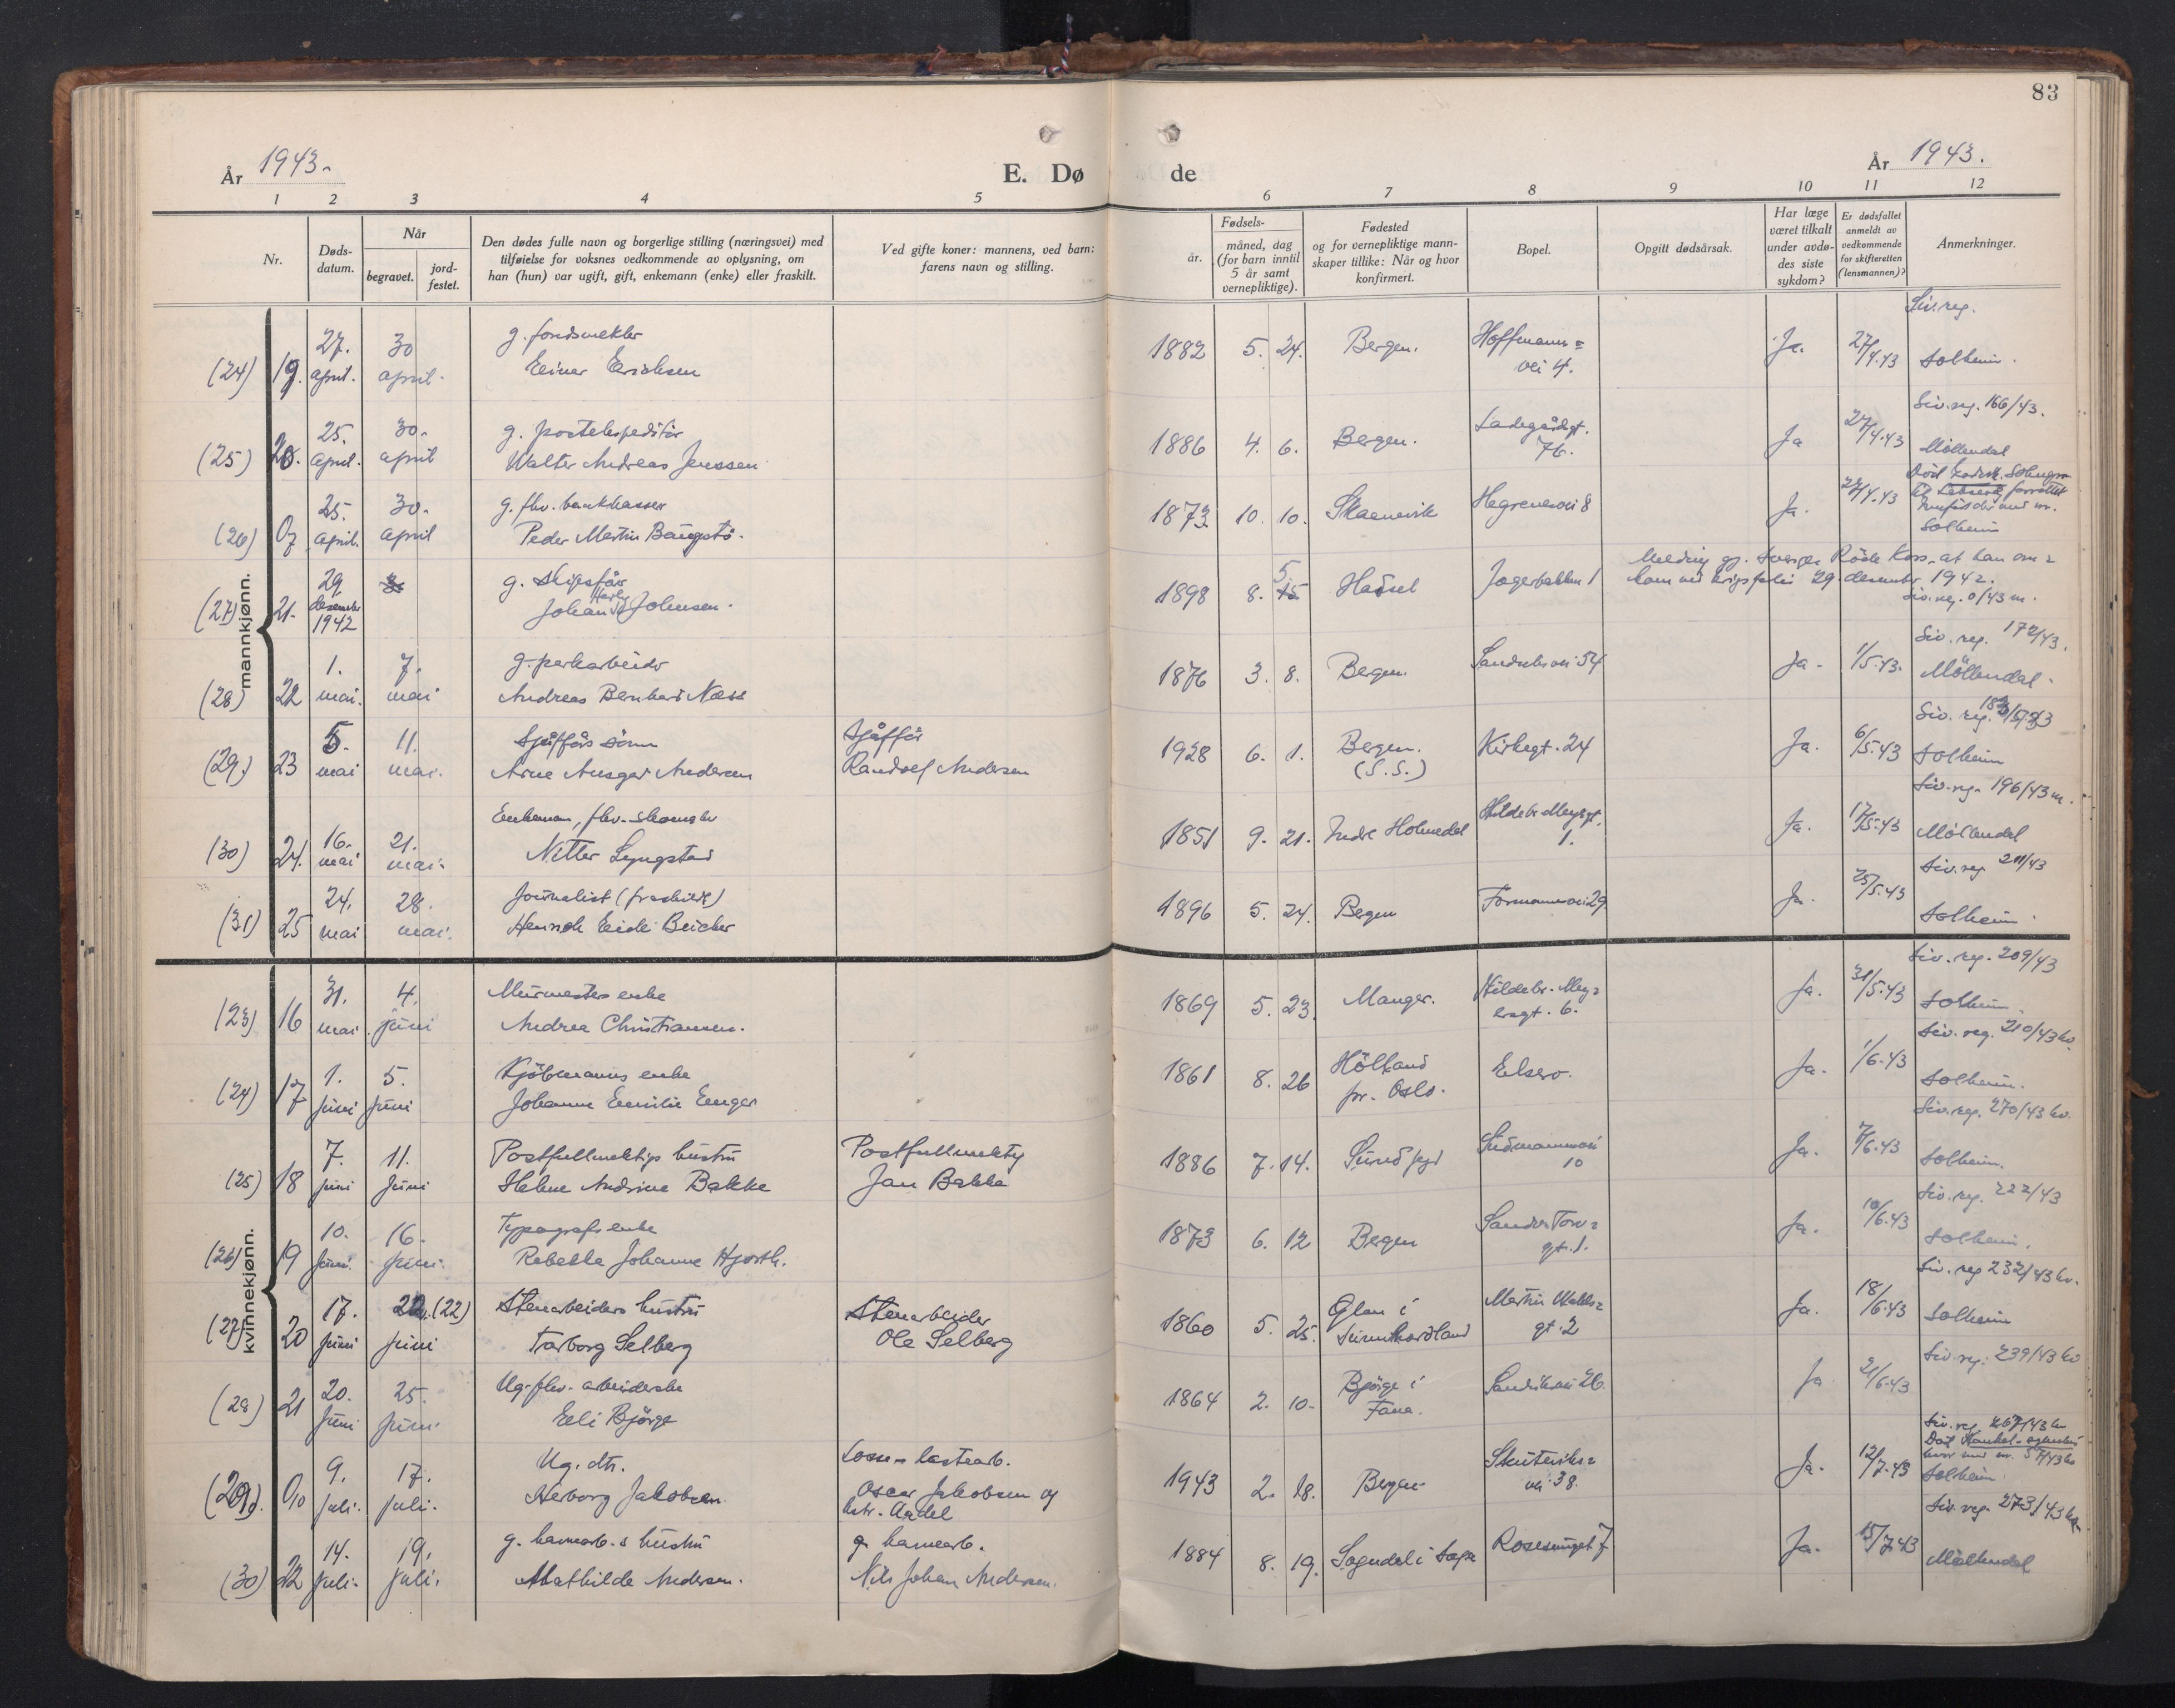 83
År 1943.
E. Dø
de
År 1943.
1 2 3 4 5 6 7 8 9 10 11 12
Nr.
Døds-
datum.
Når
begravet.
jord-
festet.
Den dødes fulle navn og borgerlige stilling (næringsvei) med
tilføielse for voksnes vedkommende av oplysning, om
han (hun) var ugift, gift, enkemann (enke) eller fraskilt.
Ved gifte koner: mannens, ved barn:
farens navn og stilling.
Fødsels-
år.
måned, dag
(for barn inntil
5 år samt
vernepliktige).
Fødested
og for vernepliktige mann-
skaper tillike: Når og hvor
konfirmert.
Bopel.
Opgitt dødsårsak.
Har læge
været tilkalt
under avdø-
des siste
sykdom?
Er dødsfallet
anmeldt av
vedkommende
for skifteretten
(lensmannen)?
Anmerkninger.
mannkjønn.
Siv. reg.
27. 30 g. fondsmekler 1882 5. 24. Bergen. Hoffmanns= Ja. 27/4.43
(24) 19. april. april. Einar Erichsen vei 4. Solheim.
Siv. reg. 166/43.
25. 30. g. postekspeditør 1886 4. 6. Bergen. Ladegårdsgt. Ja 27/4.43
(25) 20. april. april Walter Andreas Jenssen 76. Møllendal
25. 30. g. fhv. bankkasser 1873 10. 10. Skaanevik Hegreneset 8 Ja. 27/4.43
(26) 07 april. april Peder Martin Solheim
29 g. skipsfør 1898 8. 5 Hadsel Jægerbakken 1
Melding gj. Sveriges Røde Kors at han om=
kom ved krigsforlis 29. desember 1942.
(27) 21. desember 1942 Johan Johnsen. Siv. reg. 0/43 m.
Siv. reg. 172/43.
1. 7. g. parkarbeider 1876 3. 8. Bergen. Sandviksvei 54 Ja. 1/5.43.
(28) 22 mai. mai Andreas Bernhard Næss Møllendal.
Siv. reg.
5. 11. Sjåførs sønn Sjåfør 1928 6. 1. Bergen. Kirkegt. 24 Ja. 6/5.43
(29) 23 mai mai. Arne Ansgar Andersen Randolf Andersen (S.S.) Solheim
Siv. reg. 196/43 m.
16. 21. Enkeman, fhv. skomaker 1851 9. 21. Indre Holmedal 1. Ja. 17/5.43
(30) 24. mai mai. Nitter Lyngstad Møllendal
Siv. reg 211/43
24. 28. Journalist (fraskilt) 1896 5. 24. Bergen Formannsvei 29 Ja. 25/5.43
(31) 25 mai mai. Henrik Eide Solheim.
kvinnekjønn.
Siv. reg. 209/43
31. 4. Murmesters enke 1869 5. 23. Manger. Hildebr. Mey= Ja. 31/5.43
(23) 16 mai. juni Andrea Christiansen. ersgt. 6. Solheim.
Siv. reg. 210/43 kv.
1. 5. Kjøbmanns enke 1861 8. 26 Høland Elsero. Ja. 1/6.43
(24) 17 juni juni Johanne Emilie Enger pr. Oslo. Solheim.
Siv. reg. 270/43 kv.
7. 11. Postfullmektigs hustru Postfullmektig 1886 7. 14. Sundfjord 10 Ja. 7/6.43
(25) 18 juni juni Helene Andrine Bakke Jan Bakke Solheim.
Siv. reg. 222/43
10. 16. Typografs enke 1873 6. 12 Bergen Sandvikstorv= Ja. 10/6.43
(26) 19 juni. juni. Rebekka Johanne Hjorth. gt. 1. Solheim.
Siv. reg 232/43 kv.
17. 22. (22) Stenarbeiders hustru Stenarbeider 1860 5. 25. Ølen i Martin Vahls= Ja. 18/6.43
(27) 20 juni juni Torborg Selberg Ole Selberg Sunnhordland gt. 2 Solheim
Siv. reg. 239/43 kv
20. 25. Ug. fhv. arbeiderske 1864 2. 10. Bjørge i Sandviksvei 26. Ja 21/6.43
(28) 21 juni juni. Eli Bjørge Fana.
Siv. reg. 267/43 kv
9. 17. Ug. dtr. Losse- lastearb. 1943 2. 18. Bergen Skuteviks= Ja. 12/7.43
(29). 010 juli. juli. Herborg Jakobsen. Oscar Jakobsen og vei 38. Solheim.
hstr. Aadel
Siv. reg. 273/43 kv.
14. 19. g. havnearb.s hustru g. havnearb. 1884 8. 19. Sogndal i Sogn Rosesmuget 7 Ja. 15/7.43
(30) 22 juli. juli. Mathilde Andersen. Nils Johan Andersen. Møllendal